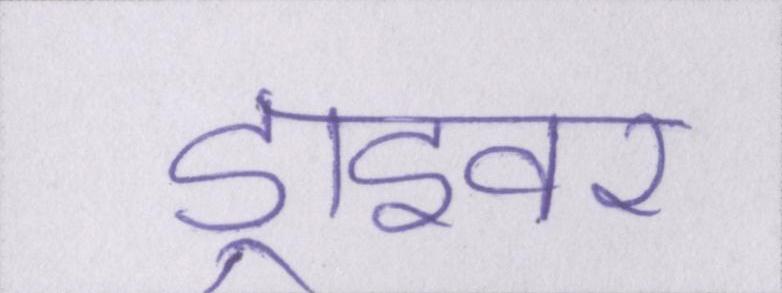 ड्राइवर